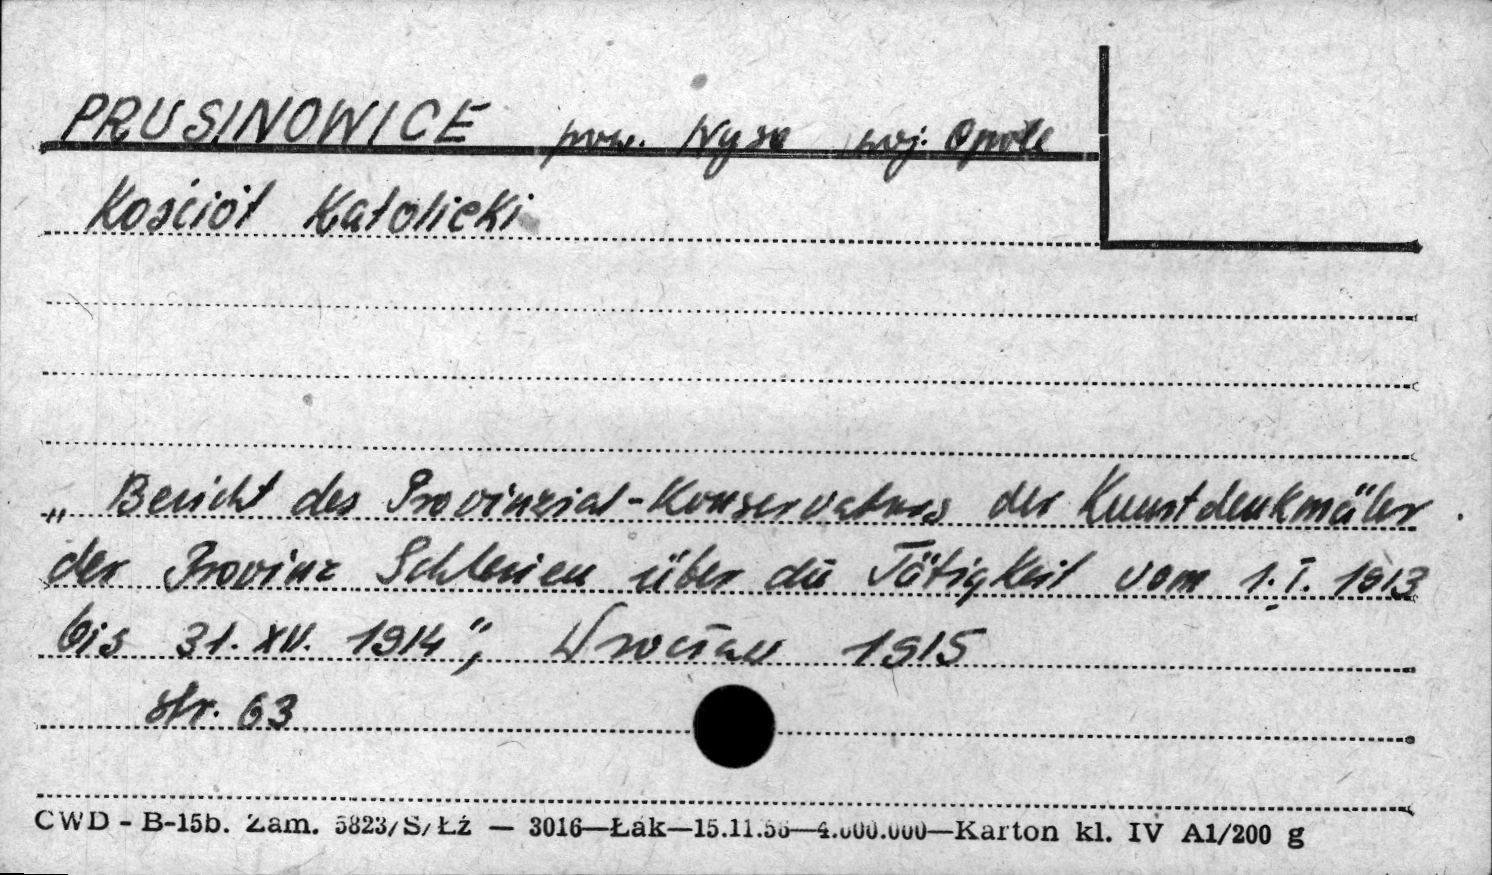 PRUSINOWICE pow. Nysa woj. Opole
Kościół Katolicki
„Bericht des Provinzial-Konservators der Kunstdenkmäler
der Provinz Schlesien über die Tätigkeit vom 1.I. 1913
bis 31.XII. 1914”, Wrocław 1915
str. 63
CWD - B-15b. Zam. 5823/S/Łż — 3016—Łak—15.11.56—4.000.000—Karton kl. IV A1/200 g